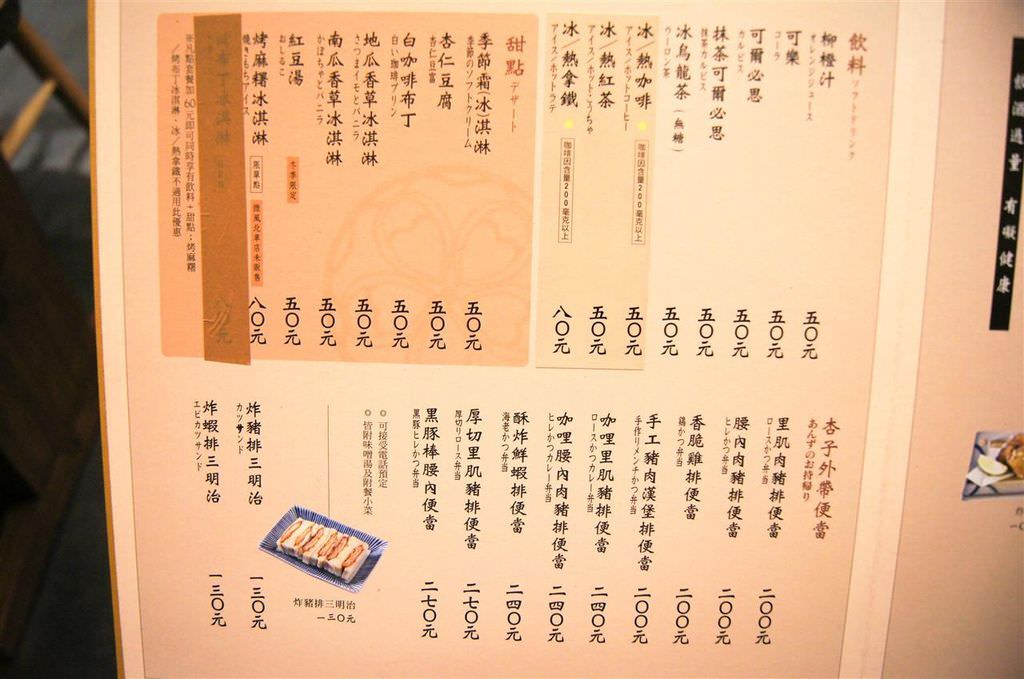 飲料 ソフトドリンク
柳橙汁 オレンジジュース 五〇元
可樂 コーラ 五〇元
可爾必思 カルピス 五〇元
抹茶可爾必思 抹茶カルピス 五〇元
冰烏龍茶(無糖) ウーロン茶 五〇元
冰/熱咖啡 アイス/ホットコーヒー 咖啡因含量200毫克以上 五〇元
冰/熱紅茶 アイス/ホットこうちゃ 五〇元
冰/熱拿鐵 アイス/ホットラテ 咖啡因含量200毫克以上 八〇元
甜點 デザート
季節霜(冰)淇淋 季節のソフトクリーム 五〇元
杏仁豆腐 杏仁豆富 五〇元
白咖啡布丁 白い珈琲プリン 五〇元
地瓜香草冰淇淋 さつまイモとバニラ 五〇元
南瓜香草冰淇淋 かぼちゃとバニラ 五〇元
紅豆湯 おしるこ 冬季限定 五〇元
烤麻糬冰淇淋 焼きもちアイス 限單點 微風北車店未販售 八〇元
布丁冰淇淋 八〇元
※凡點套餐加60元即可同時享有飲料+甜點;烤麻糬
/烤布丁冰淇淋、冰/熱拿鐵不適用此優惠
杏子外帶便當 あんずのお持帰り
里肌肉豬排便當 ロースかつ弁当 二〇〇元
腰內肉豬排便當 ヒレかつ弁当 二〇〇元
香脆雞排便當 鶏かつ弁当 二〇〇元
手工豬肉漢堡排便當 手作りメンチかつ弁当 二〇〇元
咖哩里肌豬排便當 ロースかつカレー弁当 二四〇元
咖哩腰內肉豬排便當 ヒレかつカレー弁当 二四〇元
酥炸鮮蝦排便當 海老かつ弁当 二四〇元
厚切里肌豬排便當 厚切りロース弁当 二七〇元
黑豚棒腰內便當 黒豚ヒレかつ弁当 二七〇元
可接受電話預定
皆附味噌湯及附餐小菜
炸豬排三明治
一三〇元
炸豬排三明治 カツサンド 一三〇元
炸蝦排三明治 エビカツサンド 一三〇元
飲酒過量 有礙健康